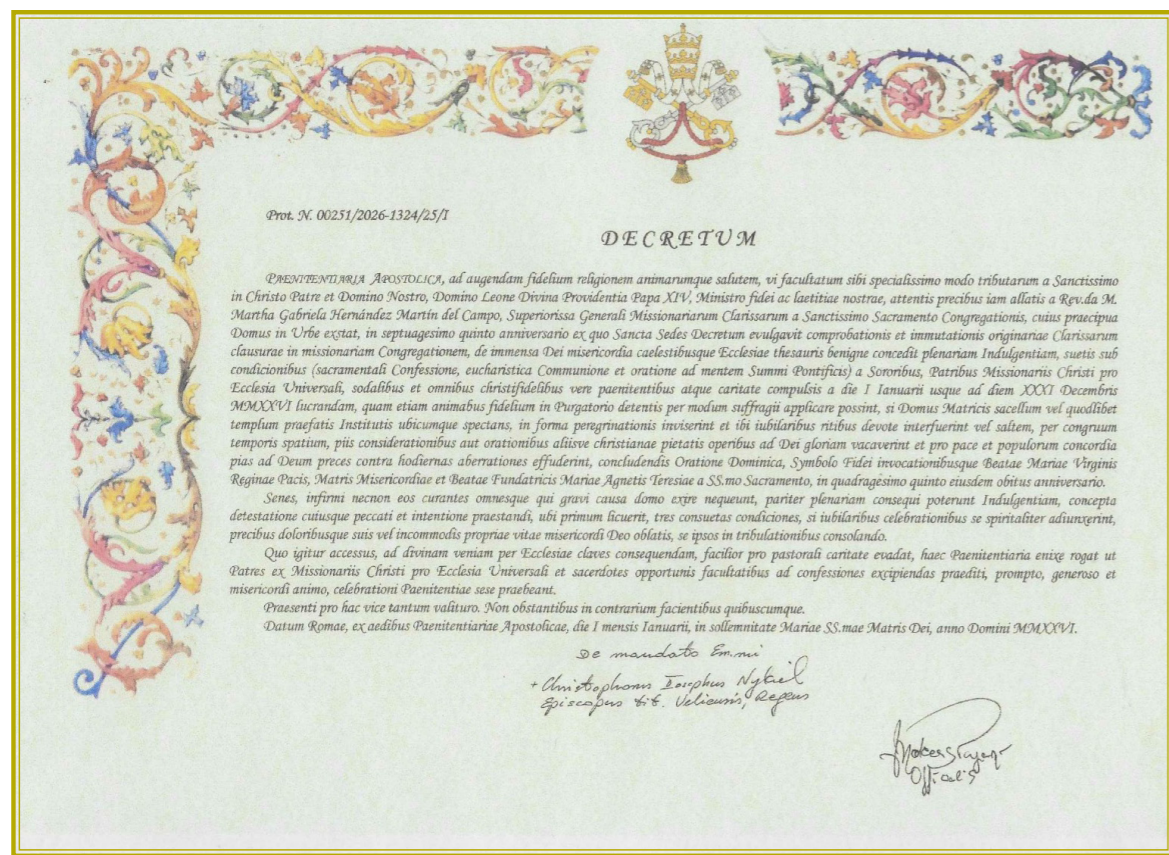 Prot. N. 00251/2026-1324/25/I
DECRETUM
PAENITENTIARIA APOSTOLICA, ad augendam fidelium religionem animarumque salutem, vi facultatum sibi specialissimo modo tributarum a Sanctissimo
in Christo Patre et Domino Nostro, Domino Leone Divina Providentia Papa XIV, Ministro fidei ac laetitiae nostrae, attentis precibus iam allatis a Rev.da M.
Martha Gabriela Hernández Martín del Campo, Superiorissa Generali Missionariarum Clarissarum a Sanctissimo Sacramento Congregationis, cuius praecipua
Domus in Urbe exstat, in septuagesimo quinto anniversario ex quo Sancta Sedes Decretum evulgavit comprobationis et immutationis originariae Clarissarum
clausurae in missionariam Congregationem, de immensa Dei misericordia caelestibusque Ecclesiae thesauris benigne concedit plenariam Indulgentiam, suetis sub
condicionibus (sacramentali Confessione, eucharistica Communione et oratione ad mentem Summi Pontificis) a Sororibus, Patribus Missionariis Christi pro
Ecclesia Universali, sodalibus et omnibus christifidelibus vere paenitentibus atque caritate compulsis a die I Ianuarii usque ad diem XXXI Decembris
MMXXVI lucrandam, quam etiam animabus fidelium in Purgatorio detentis per modum suffragii applicare possint, si Domus Matricis sacellum vel quodlibet
templum praefatis Institutis ubicumque spectans, in forma peregrinationis inviserint et ibi iubilaribus ritibus devote interfuerint vel saltem, per congruum
temporis spatium, piis considerationibus aut orationibus aliisve christianae pietatis operibus ad Dei gloriam vacaverint et pro pace et populorum concordia
pias ad Deum preces contra hodiernas aberrationes effuderint, concludendis Oratione Dominica, Symbolo Fidei invocationibusque Beatae Mariae Virginis
Reginae Pacis, Matris Misericordiae et Beatae Fundatricis Mariae Agnetis Teresiae a SS.mo Sacramento, in quadragesimo quinto eiusdem obitus anniversario.
Senes, infirmi necnon eos curantes omnesque qui gravi causa domo exire nequeunt, pariter plenariam consequi poterunt Indulgentiam, concepta
detestatione cuiusque peccati et intentione praestandi, ubi primum licuerit, tres consuetas condiciones, si iubilaribus celebrationibus se spiritaliter adiunxerint,
precibus doloribusque suis vel incommodis propriae vitae misericordi Deo oblatis, se ipsos in tribulationibus consolando.
Quo igitur accessus, ad divinam veniam per Ecclesiae claves consequendam, facilior pro pastorali caritate evadat, haec Paenitentiaria enixe rogat ut
Patres ex Missionariis Christi pro Ecclesia Universali et sacerdotes opportunis facultatibus ad confessiones excipiendas praediti, prompto, generoso et
misericordi animo, celebrationi Paenitentiae sese praebeant.
Praesenti pro hac vice tantum valituro. Non obstantibus in contrarium facientibus quibuscumque.
Datum Romae, ex aedibus Paenitentiariae Apostolicae, die I mensis Ianuarii, in sollemnitate Mariae SS.mae Matris Dei, anno Domini MMXXVI.
De mandato Em.mi
+ Christophorus Iosephus Nykiel
Episcopus tit. Veliensis, Regens
Officialis